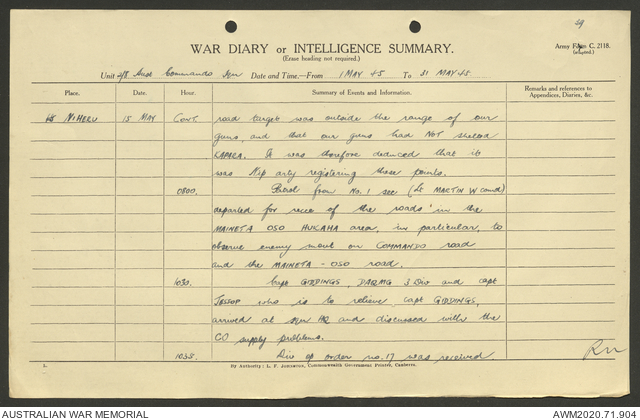 WAR DIARY or INTELLIGENCE SUMMARY.
(Erase heading not required.)
Army Form C. 2118.
(adapted.)
Unit 2/8 Aust Commando Sqn Date and Time—From 1 MAY 45 To 31 MAY 45
Place. Date. Hour. Summary of Events and Information. Remarks and references to Appendices, Diaries, &c.
NIHERU 15 MAY CONT. road target was outside the range of our
guns, and that our guns had NOT shelled
KAPARA. It was therefore deduced that it
was Nip arty registering these points.
0800. Patrol from No. 1 sec (Lt MARTIN W comd)
departed for recce of the roads in the
MAINETA OSO HUKAHA area, in particular, to
observe enemy movt on COMMANDO road
and the MAINETA - OSO road.
1030. Capt GIDDINGS, DAQMG 3 Div and Capt
JESSOP who is to relieve Capt GIDDINGS,
arrived at sqn HQ and discussed with the
CO supply problems.
1035. Div op order no. 17 was received.
By Authority: L. F. Johnston, Commonwealth Government Printer, Canberra.
AUSTRALIAN WAR MEMORIAL
AWM2020.71.904